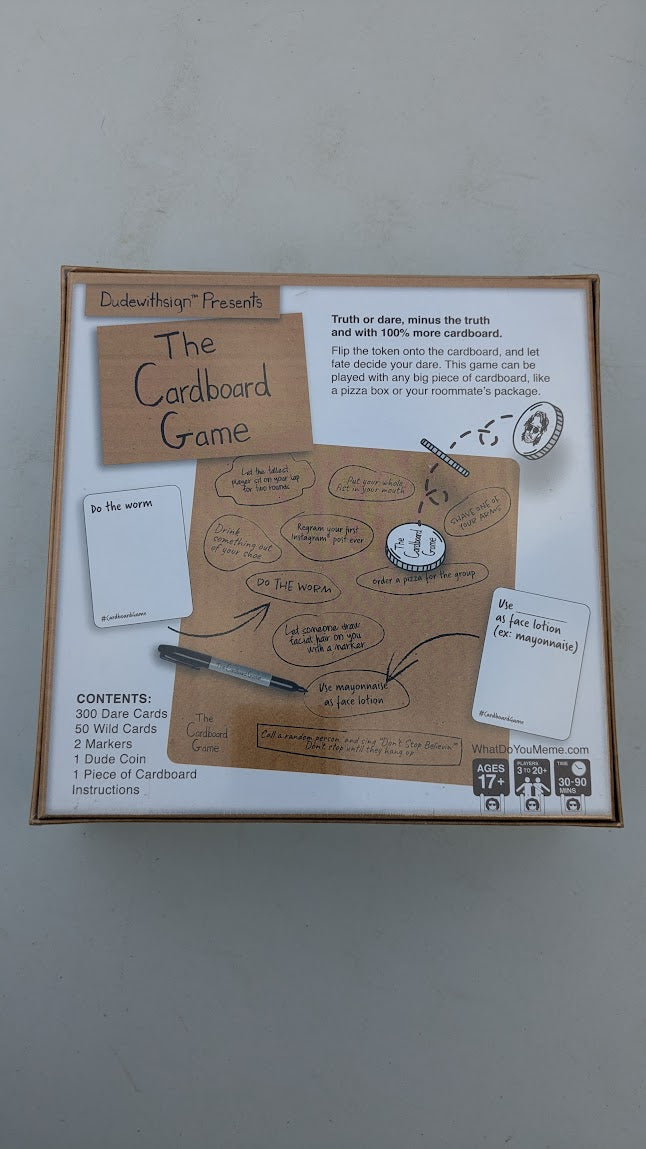 Dudewithsign™ Presents
The
Cardboard
Game
Truth or dare, minus the truth
and with 100% more cardboard.
Flip the token onto the cardboard, and let
fate decide your dare. This game can be
played with any big piece of cardboard, like
a pizza box or your roommate's package.
Let the tallest
player sit on your lap
for two rounds
Put your whole
fist in your mouth
SHAVE ONE OF
YOUR ARMS
Drink
something out
of your shoe
Regram your first
Instagram® post ever
The
Cardboard
Game
DO THE WORM
order a pizza for the group
Let someone draw
facial hair on you
with a marker
Use mayonnaise
as face lotion
Call a random person and sing "Don't Stop Believin'"
Don't stop until they hang up
The
Cardboard
Game
Do the worm
#CardboardGame
Use ________
as face lotion
(ex: mayonnaise)
#CardboardGame
The Cardboard Game
CONTENTS:
300 Dare Cards
50 Wild Cards
2 Markers
1 Dude Coin
1 Piece of Cardboard
Instructions
WhatDoYouMeme.com
AGES
17+
PLAYERS
3 TO 20+
TIME
30-90
MINS